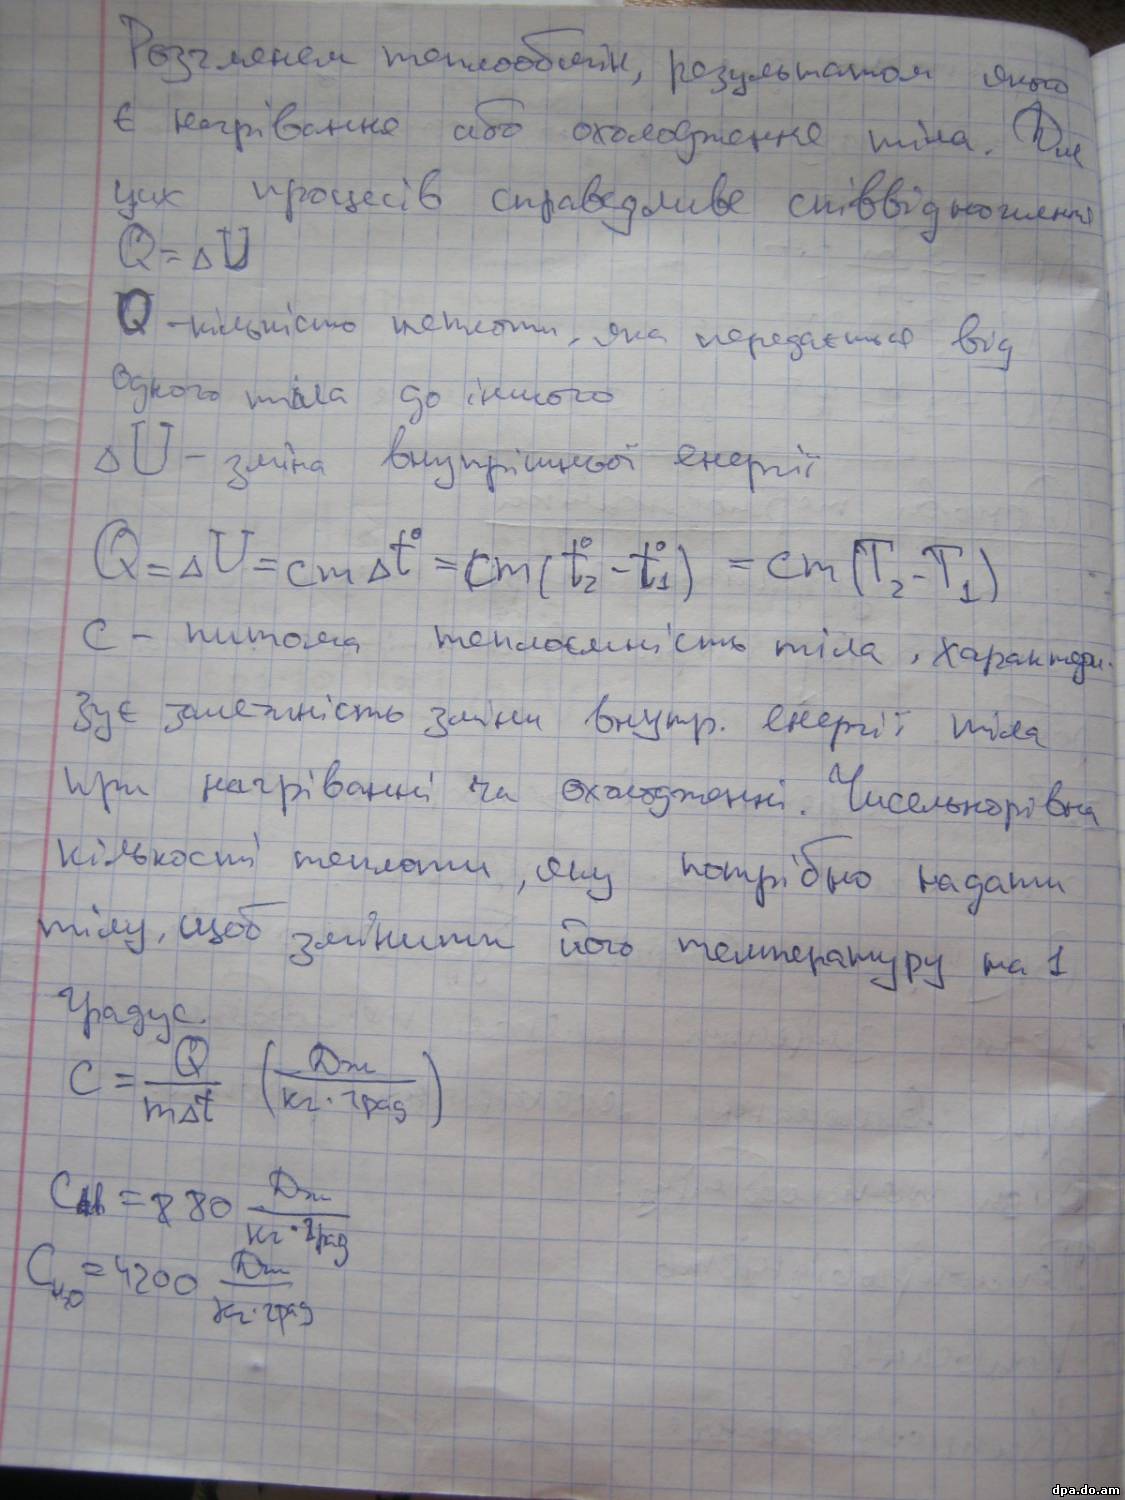 Розглянем теплообмін, результатом якого
є нагрівання або охолодження тіла. Для
цих процесів справедливе співвідношення
Q = ΔU
Q - кількість теплоти, яка передається від
одного тіла до іншого
ΔU - зміна внутрішньої енергії
Q = ΔU = cmΔt° = cm(t°₂ - t°₁) = cm(T₂ - T₁)
c - питома теплоємність тіла, характери-
зує залежність зміни внутр. енергії тіла
при нагріванні чи охолодженні. Чисельно рівна
кількості теплоти, яку потрібно надати
тілу, щоб змінити його температуру на 1
градус.
c = Q/mΔt (Дж/кг·град)
c = 880 Дж/кг·град
c H₂O = 4200 Дж/кг·град
dpa.do.am